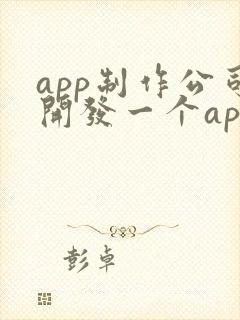 app制作公司
開發一个ap
彭卓